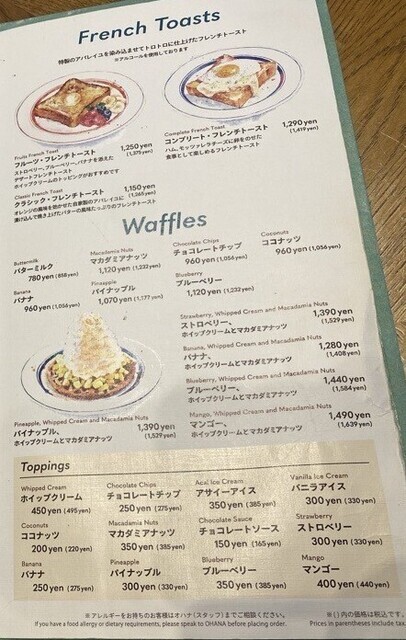 French Toasts
特製のアパレイユを染み込ませてトロトロに仕上げたフレンチトースト
※アルコールを使用しております
Fruits French Toast
フルーツ・フレンチトースト 1,250 yen
(1,375 yen)
ストロベリー、ブルーベリー、バナナを添えた
デザートフレンチトースト
ホイップクリームのトッピングがおすすめです
Complete French Toast
コンプリート・フレンチトースト 1,290 yen
(1,419 yen)
ハム、モッツァレラチーズに卵をのせた
食事として楽しめるフレンチトースト
Classic French Toast
クラシック・フレンチトースト 1,150 yen
(1,265 yen)
オレンジの風味を効かせた自家製のアパレイユに
漬け込んで焼き上げたバターの風味たっぷりのフレンチトースト
Waffles
Buttermilk
バターミルク
780 yen (858 yen)
Macadamia Nuts
マカダミアナッツ
1,120 yen (1,232 yen)
Chocolate Chips
チョコレートチップ
960 yen (1,056 yen)
Coconuts
ココナッツ
960 yen (1,056 yen)
Banana
バナナ
960 yen (1,056 yen)
Pineapple
パイナップル
1,070 yen (1,177 yen)
Blueberry
ブルーベリー
1,120 yen (1,232 yen)
Strawberry, Whipped Cream and Macadamia Nuts
ストロベリー、 1,390 yen
ホイップクリームとマカダミアナッツ (1,529 yen)
Banana, Whipped Cream and Macadamia Nuts
バナナ、 1,280 yen
ホイップクリームとマカダミアナッツ (1,408 yen)
Blueberry, Whipped Cream and Macadamia Nuts
ブルーベリー、 1,440 yen
ホイップクリームとマカダミアナッツ (1,584 yen)
Mango, Whipped Cream and Macadamia Nuts
マンゴー、 1,490 yen
ホイップクリームとマカダミアナッツ (1,639 yen)
Pineapple, Whipped Cream and Macadamia Nuts
パイナップル、 1,390 yen
ホイップクリームとマカダミアナッツ (1,529 yen)
Toppings
Whipped Cream
ホイップクリーム
450 yen (495 yen)
Chocolate Chips
チョコレートチップ
250 yen (275 yen)
Acai Ice Cream
アサイーアイス
350 yen (385 yen)
Vanilla Ice Cream
バニラアイス
300 yen (330 yen)
Coconuts
ココナッツ
200 yen (220 yen)
Macadamia Nuts
マカダミアナッツ
350 yen (385 yen)
Chocolate Sauce
チョコレートソース
150 yen (165 yen)
Strawberry
ストロベリー
300 yen (330 yen)
Banana
バナナ
250 yen (275 yen)
Pineapple
パイナップル
300 yen (330 yen)
Blueberry
ブルーベリー
350 yen (385 yen)
Mango
マンゴー
400 yen (440 yen)
※アレルギーをお持ちのお客様はオハナ(スタッフ)までご相談ください。
If you have a food allergy or dietary requirements, please speak to OHANA before placing order.
※( )内の価格は税込です。
Prices in parentheses include tax.